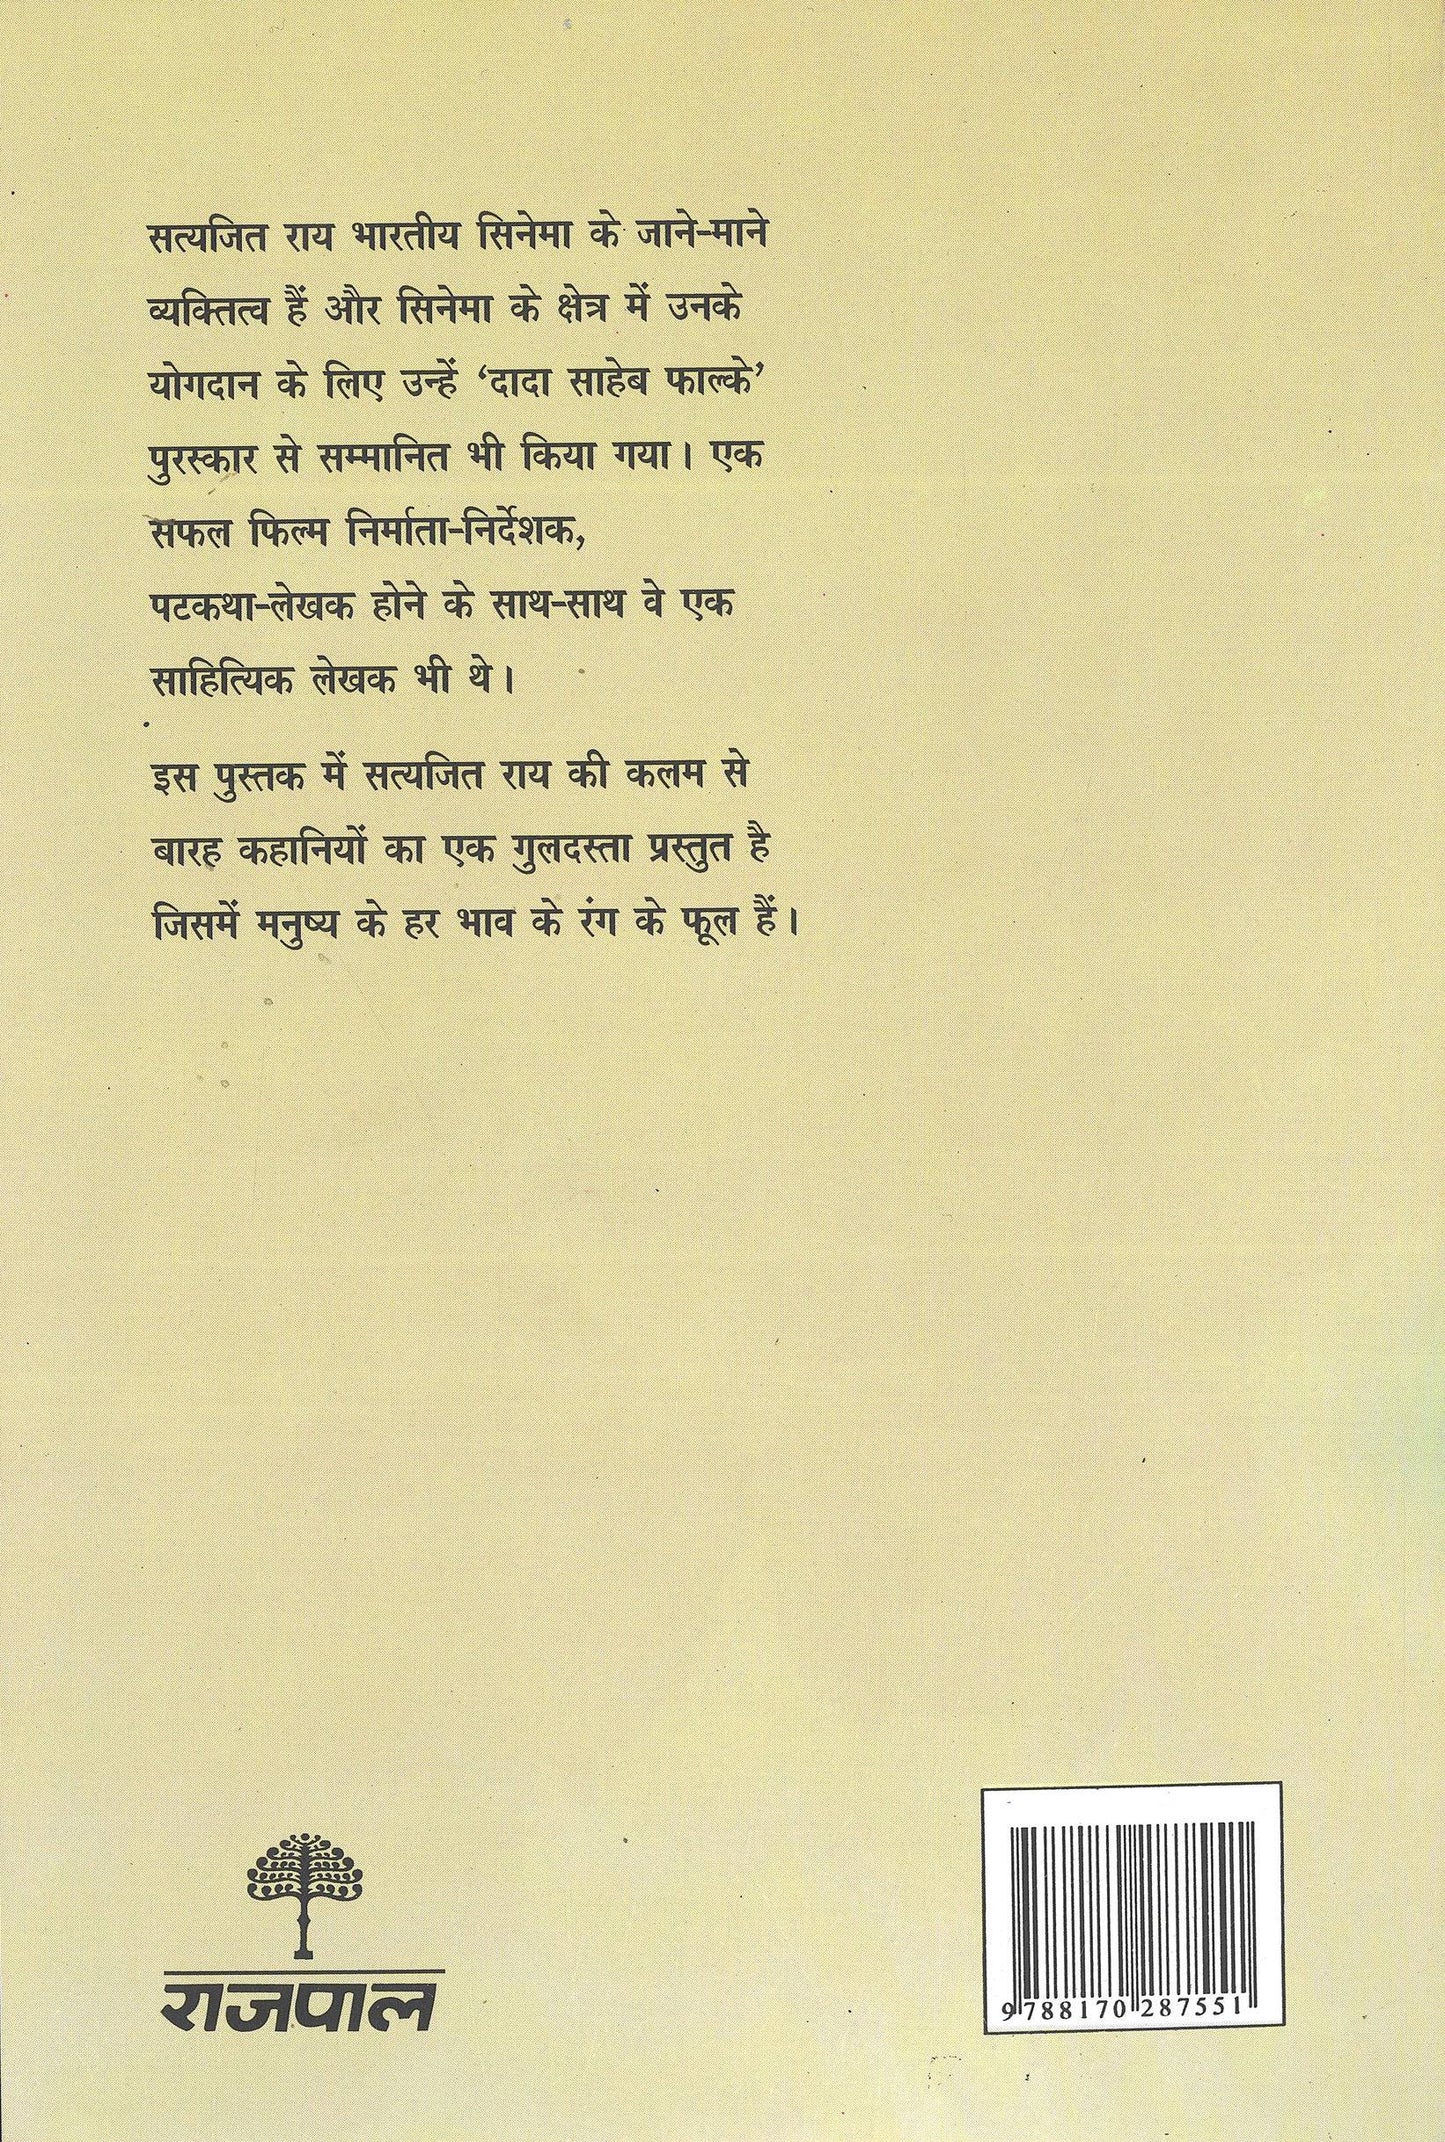 सत्यजित राय भारतीय सिनेमा के जाने-माने
व्यक्तित्व हैं और सिनेमा के क्षेत्र में उनके
योगदान के लिए उन्हें ‘दादा साहेब फाल्के’
पुरस्कार से सम्मानित भी किया गया। एक
सफल फिल्म निर्माता-निर्देशक,
पटकथा-लेखक होने के साथ-साथ वे एक
साहित्यिक लेखक भी थे।
इस पुस्तक में सत्यजित राय की कलम से
बारह कहानियों का एक गुलदस्ता प्रस्तुत है
जिसमें मनुष्य के हर भाव के रंग के फूल हैं।
राजपाल
9 788170 287551